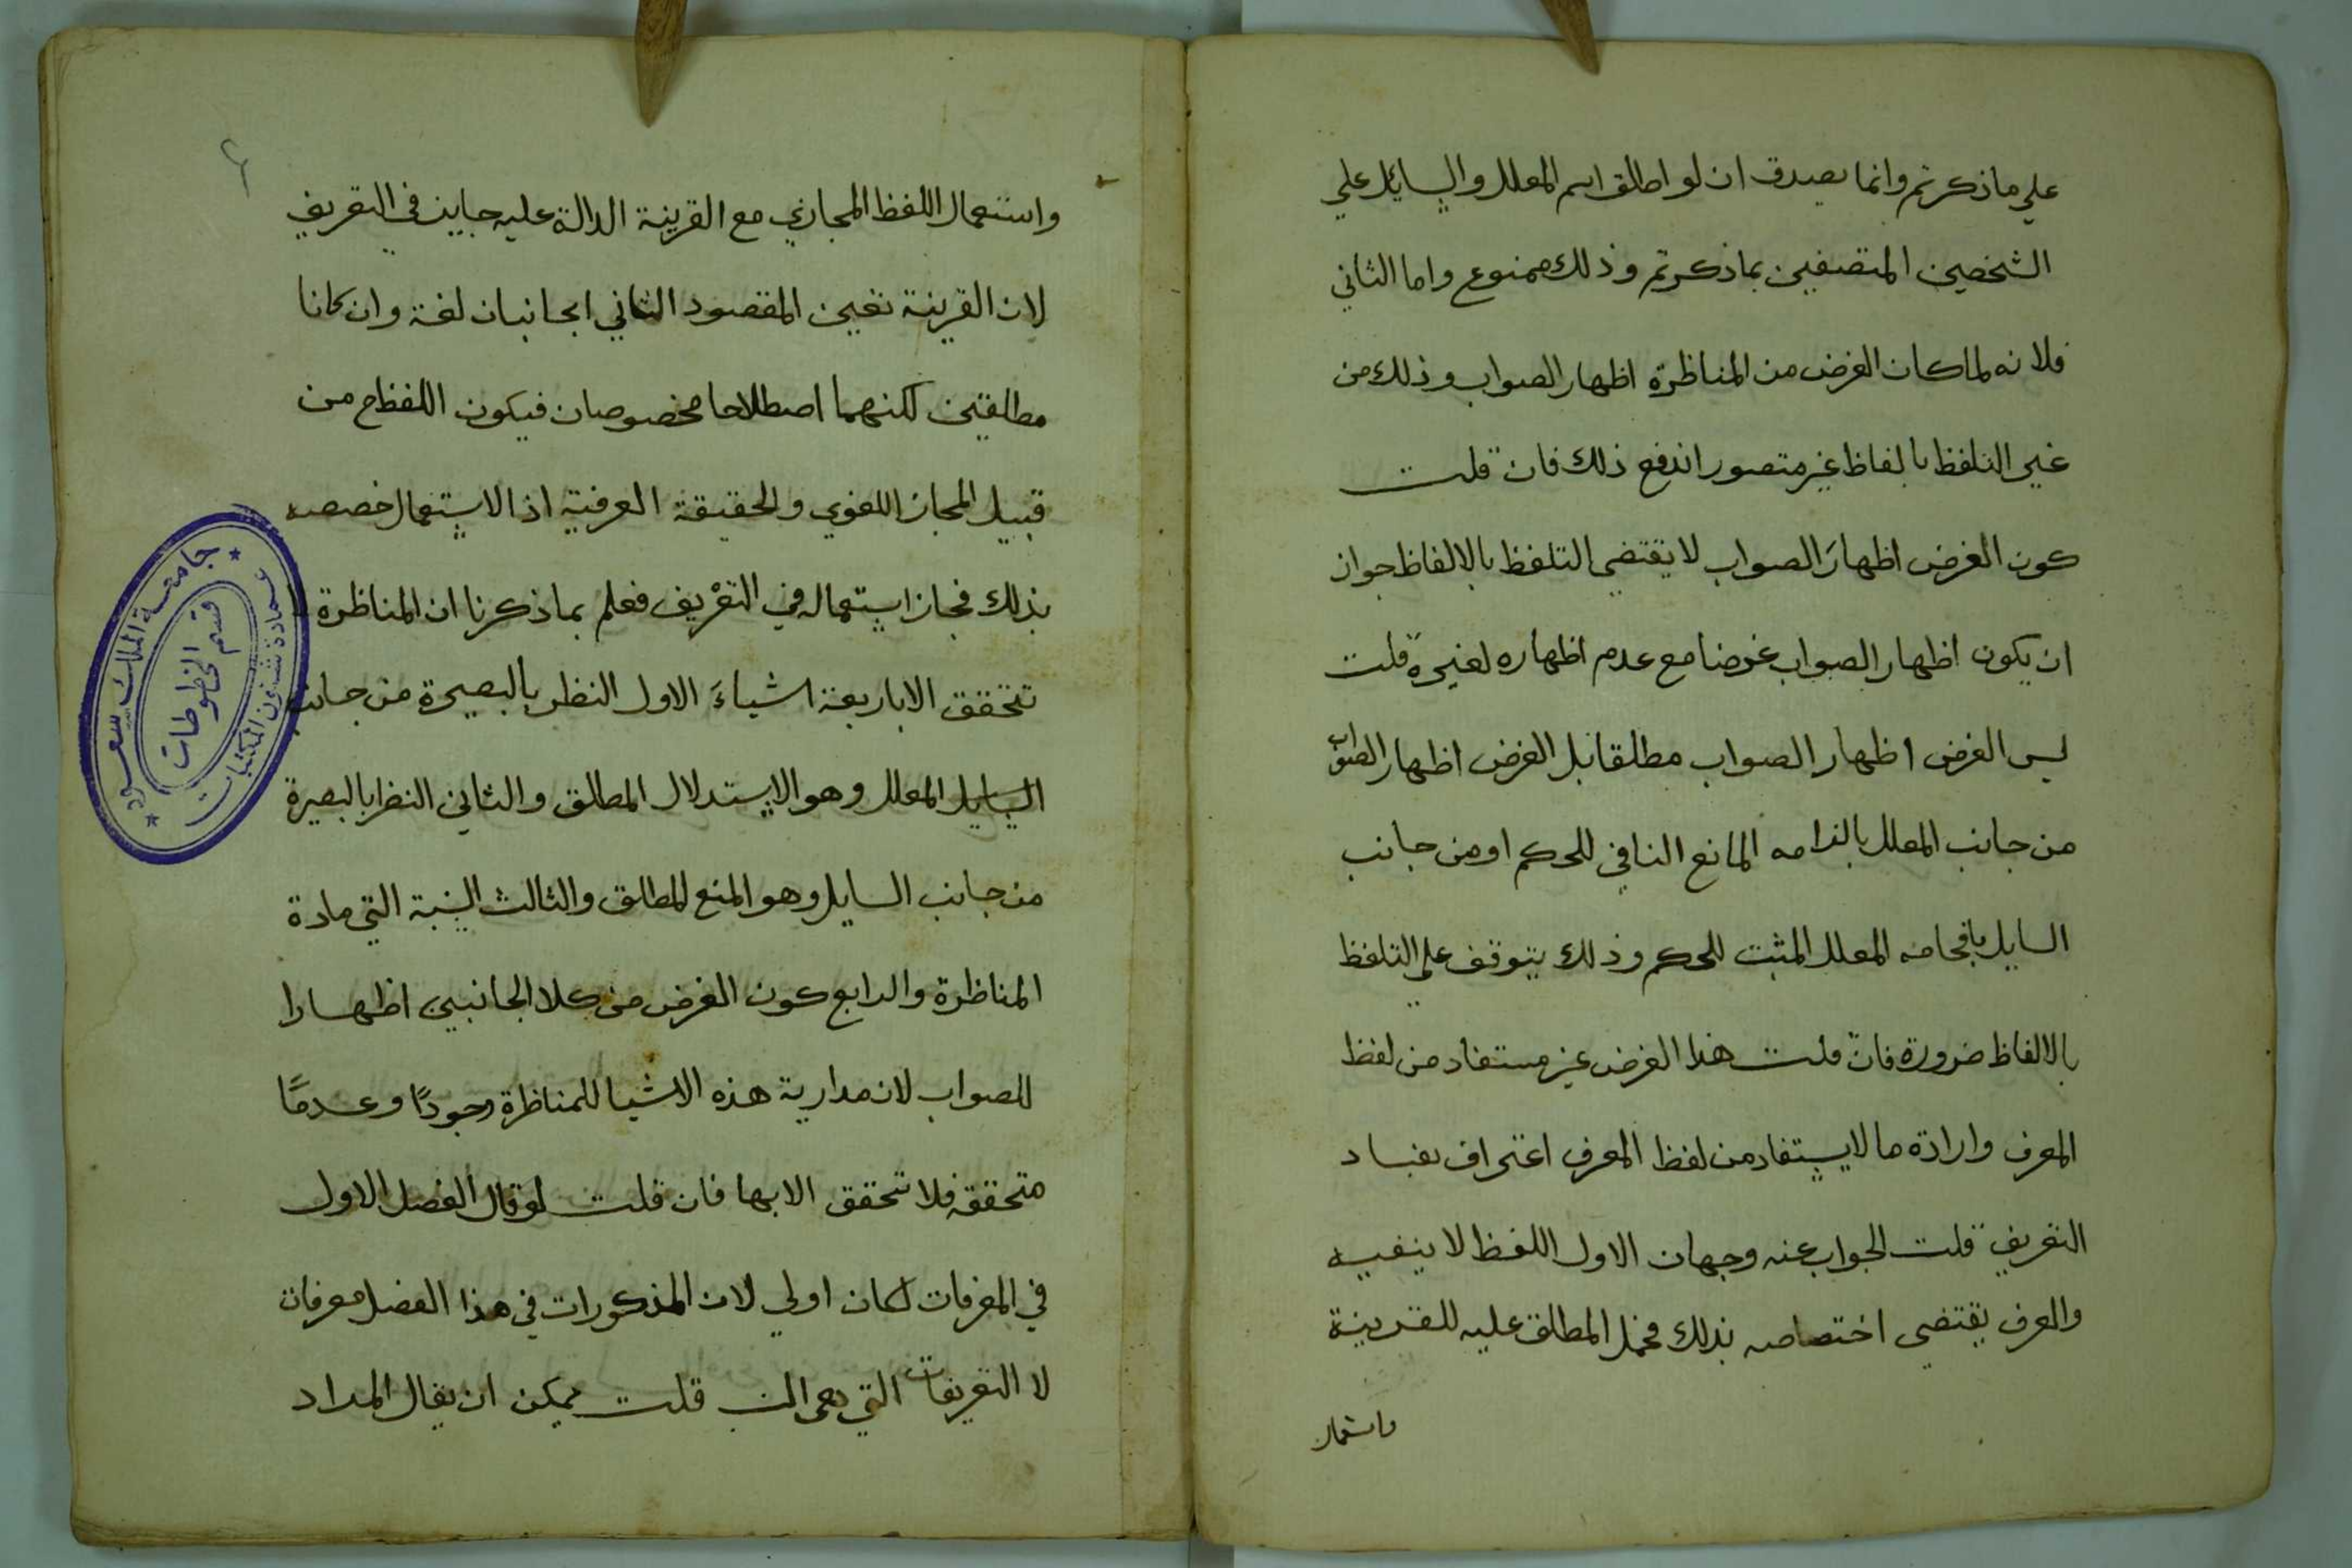 علي ما ذكرتم وانما يصدق ان لو اطلق اسم المعلل والسايل علي
الشخصين المتصفين بما ذكرتم وذلك ممنوع واما الثاني
فلانه لما كان الغرض من المناظرة اظهار الصواب وذلك من
غير التلفظ بالفاظ غير متصور اندفع ذلك فان قلت
كون الغرض اظهارَ الصواب لا يقتضي التلفظ بالالفاظ جواز
ان يكون اظهار الصواب غرضا مع عدم اظهاره لغيره قلت
ليس الغرض اظهار الصواب مطلقا بل الغرض اظهار الصواب
من جانب المعلل بالزامه المانع النافي للحكم او من جانب
السايل بافحامه المعلل المثبت للحكم وذلك يتوقف علي التلفظ
بالالفاظ ضرورة فان قلت هذا الغرض غير مستفاد من لفظ
المعرف وارادة ما لا يستفاد من لفظ المعرف اعتراف بفساد
التعريف قلت الجواب عنه وجهان الاول اللفظ لا ينفيه
والعرف يقتضي اختصاصه بذلك فحمل المطلق عليه للقرينة
واستعمال
٤
واستعمال اللفظ المجازي مع القرينة الدالة عليه جايز في التعريف
لان القرينة تعين المقصود الثاني الجانبان لغة وان كانا
مطلقين لكنهما اصطلاحا مخصوصان فيكون اللفظ ح من
قبيل المجاز اللغوي والحقيقة العرفية اذ الاستعمال خصصه
بذلك فجاز استعماله في التعْريف فعلم بما ذكرنا ان المناظرة لا
تتحقق الا باربعة اشياءَ الاول النظر بالبصيرة من جانب
السايل المعلل وهو الاستدلال المطلق والثاني النظر بالبصيرة
من جانب السايل وهو المنع المطلق والثالث النسبة التي مادة
المناظرة والرابع كون الغرض من كلا الجانبين اظهارا
للصواب لان مدارية هذه الاشيا للمناظرة وجودًا وعدمًا
متحققة فلا تتحقق الا بها فان قلت لو قال الفصل الاول
في المعرفات لكان اولي لان المذكورات في هذا الفصل معرفات
لا التعريفات التي هي قلت يمكن ان يقال المراد
جامعة الملك سعود
عمادة شئون المكتبات
قسم المخطوطات